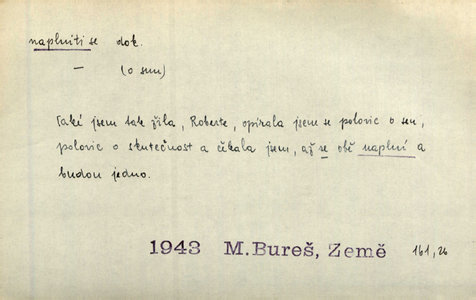 naplniti se dok.
— (o snu)
Také jsem tak žila, Roberte, opírala jsem se polovic o sen,
polovic o skutečnost a čekala jsem, až se obě naplní a
budou jedno.
1943 M. Bureš, Země 161,26